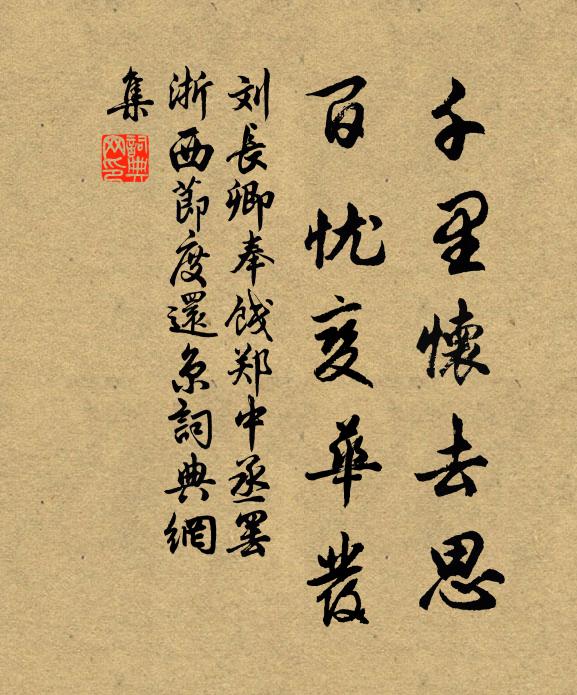 千里懷去思
百忧变華發
刘長卿奉饯郑中丞罢
浙西節度還京詞典網
集
詞典网印